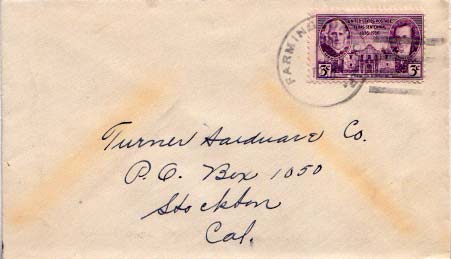 FARMING
UNITED STATES POSTAGE
TEXAS CENTENNIAL
1836-1936
3¢ 3¢
Turner Hardware Co.
P.O. Box 1050
Stockton
Cal.